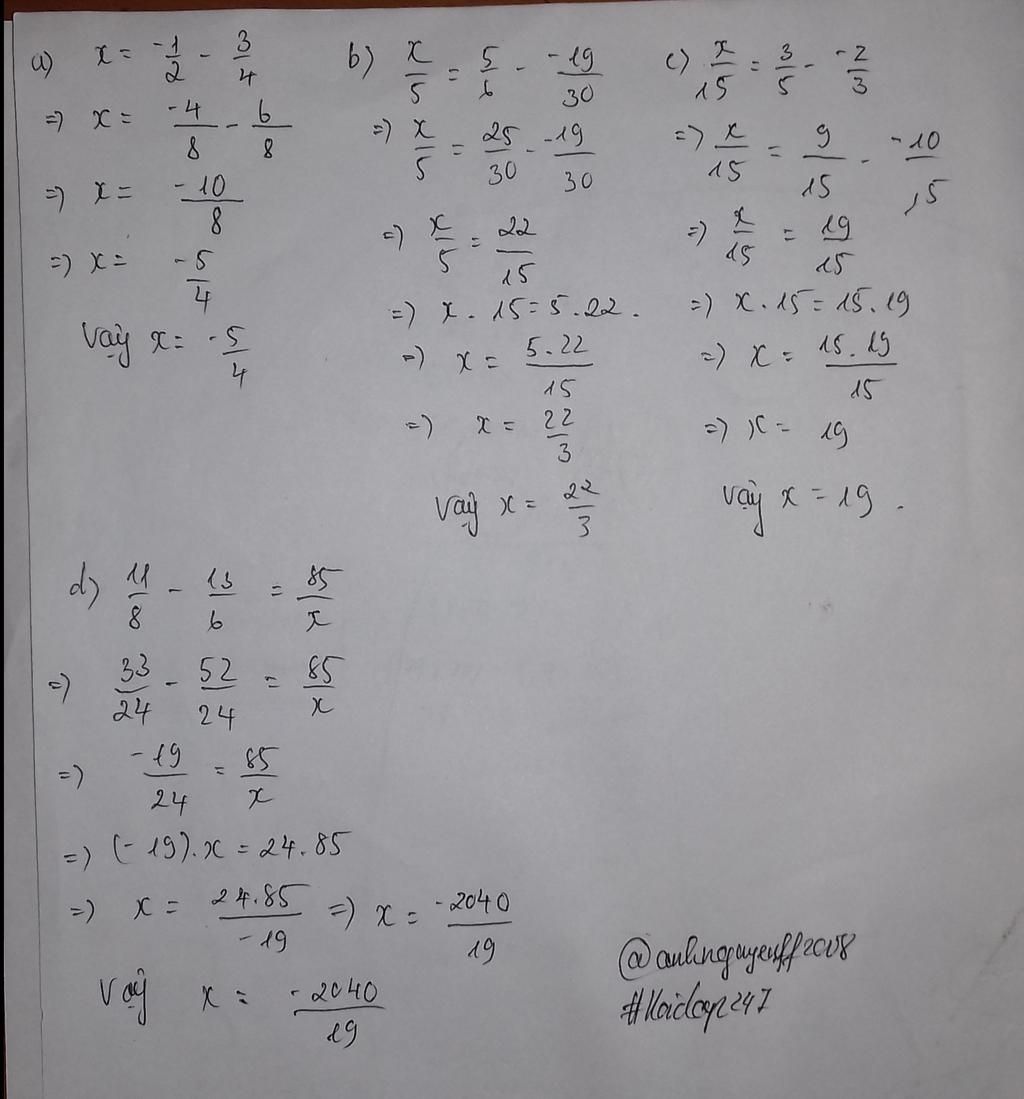 a) x = -1/2 - 3/4
=) x = -4/8 - 6/8
=) x = -10/8
=) x = -5/4
Vậy x = -5/4
b) x/5 = 5/6 - -19/30
=) x/5 = 25/30 - -19/30
=) x/5 = 22/15
=) x . 15 = 5 . 22 .
=) x = 5.22/15
=) x = 22/3
Vậy x = 22/3
c) x/15 = 3/5 - -2/3
=) x/15 = 9/15 - -10/15
=) x/15 = 19/15
=) x . 15 = 15 . 19
=) x = 15.19/15
=) x = 19
Vậy x = 19 .
d) 11/8 - 13/6 = 85/x
=) 33/24 - 52/24 = 85/x
=) -19/24 = 85/x
=) (-19).x = 24.85
=) x = 24.85/-19 =) x = -2040/19
Vậy x = -2040/19
@anhnguyenff2008
#Hoidap247